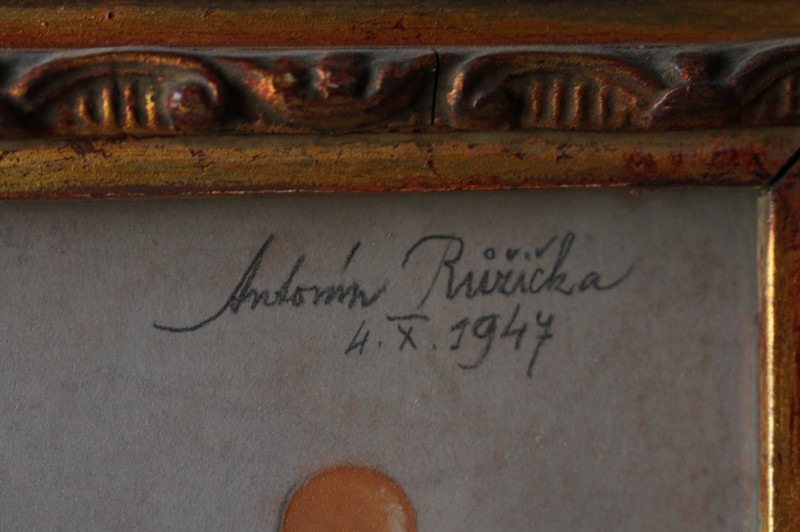 Antonín Růžička
4. X. 1947